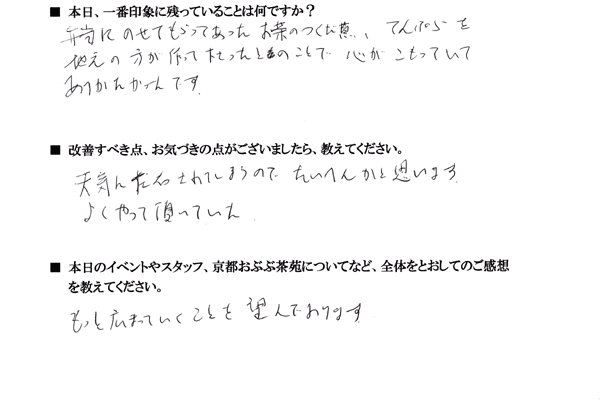 ■ 本日、一番印象に残っていることは何ですか？
弁当に のせてもらってあった お茶のつくだ煮、てんぷらを
地元の方が作って下さったとのことで 心が こもっていて
ありがたかったです。
■ 改善すべき点、お気づきの点がございましたら、教えてください。
天気に左右されてしまうので たいへんかと思います。
よくやって頂いていた
■ 本日のイベントやスタッフ、京都おぶぶ茶苑についてなど、全体をとおしてのご感想
を教えてください。
もっと広まっていくことを望んでおります。